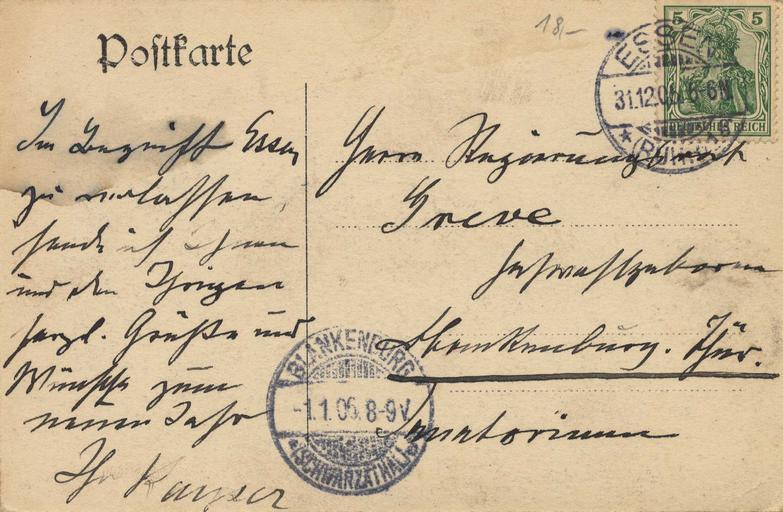 Postkarte
18,-
5 5
DEUTSCHES REICH
ESSEN
31.12.05. 6-6N
* (RUHR)
Im Begriff Essen
zu verlassen,
sende ich Ihnen
und den Ihrigen
herzl. Grüße und
Wünsche zum
neuen Jahr
Ihr Kayser
Herrn Regierungsrat
Greve
Hochwohlgeboren
Blankenburg. Thür.
Sanatorium
BLANKENBURG
-1.1.06. 8-9V.
*(SCHWARZATHAL)*